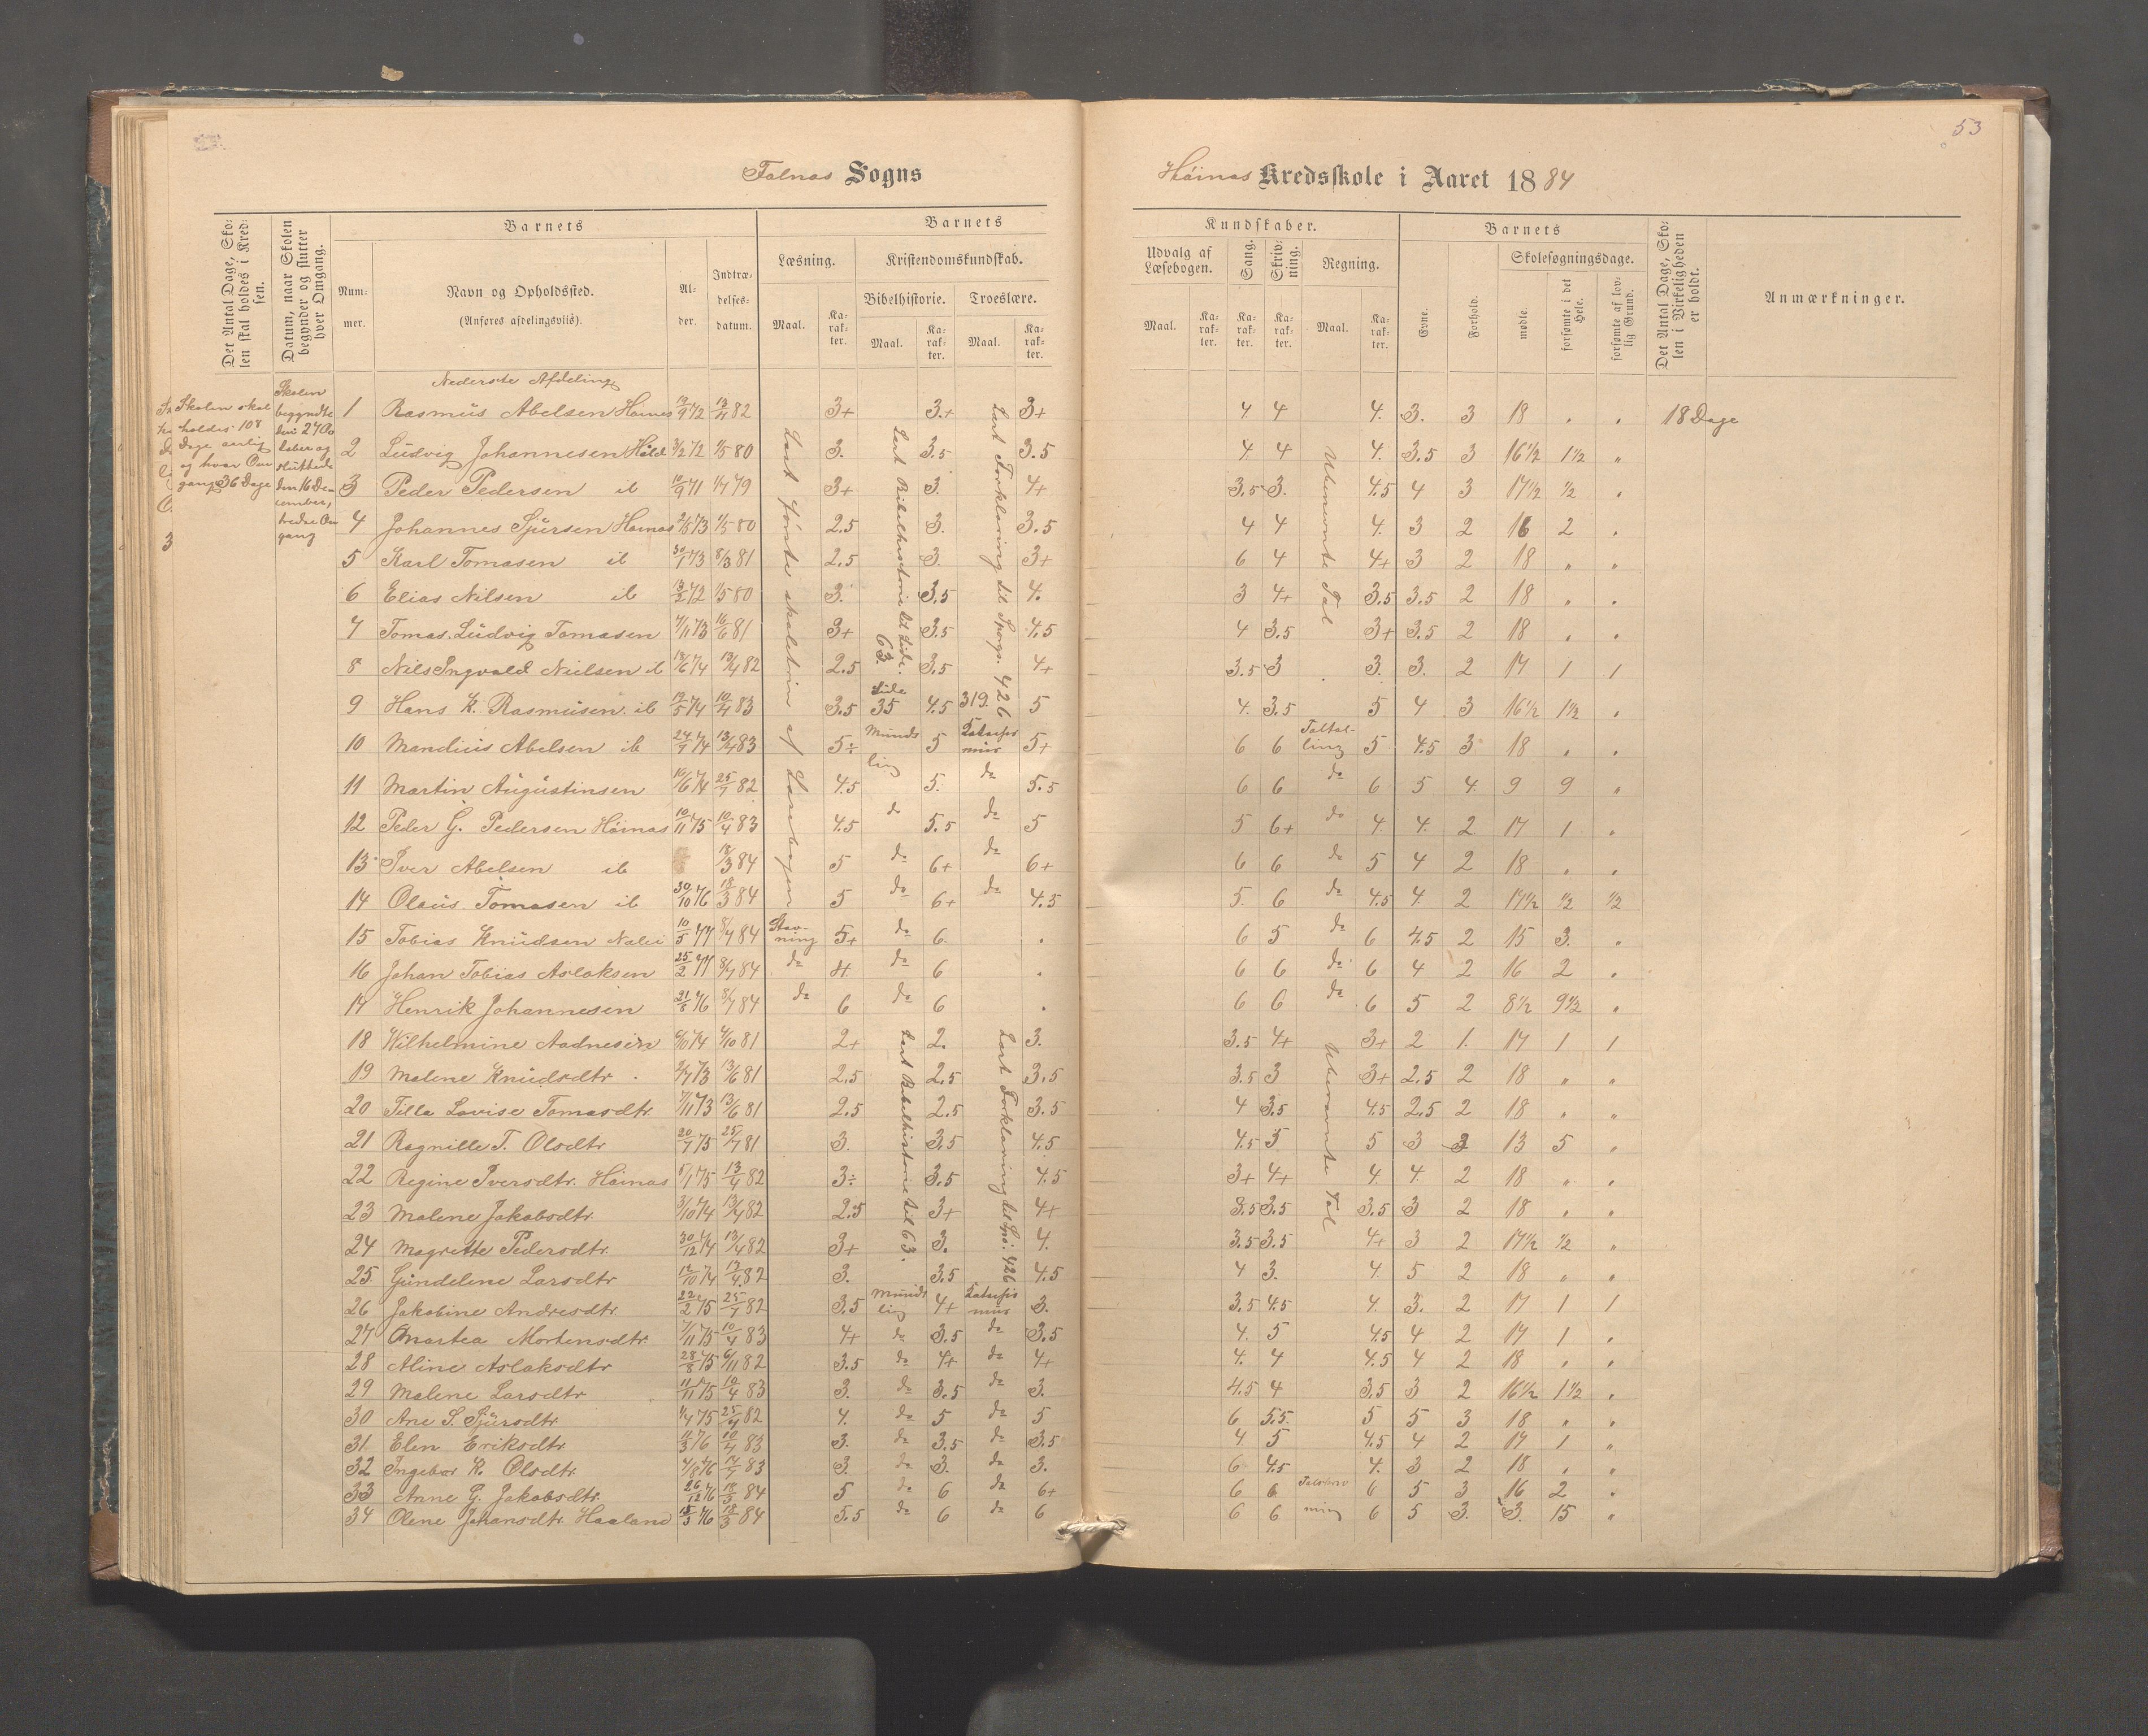 53
Falnæs Sogns
Høinæs Kredsskole i Aaret 1884
Det Antal Dage, Skolen skal holdes i Kredsen.
Datum, naar Skolen begynder og slutter hver Omgang.
Barnets
Nummer.
Navn og Opholdssted.
(Anføres afdelingsviis).
Alder.
Indtrædelsesdatum.
Barnets
Læsning.
Maal.
Karakter.
Kristendomskundskab.
Bibelhistorie.
Maal.
Karakter.
Troeslære.
Maal.
Karakter.
Kundskaber.
Udvalg af Læsebogen.
Maal.
Karakter.
Sang.
Karakter.
Skrivning.
Karakter.
Regning.
Maal.
Karakter.
Barnets
Evne.
Forhold.
Skolesøgningsdage.
mødte.
forsømte i det Hele.
forsømte af lovlig Grund.
Det Antal Dage, Skolen i Virkeligheden er holdt.
Anmærkninger.
Skolen skal
holdes 108
Dage aarlig
og hver Om
gang 36 Dage
Skolen
begyndte
den 27 Oc
tober og
sluttede
den 16 De-
cember,
tredie Om
gang
Nederste Afdeling
1 Rasmus Abelsen Høinæs 82 3+ 3.+ 3+ 4. 4 4. 3. 3 18 . . 18 Dage
2 Ludvig Johannesen 3/2 72 1/5 80 3. 3.5 3.5 4. 4 4. 3.5 3 16½ 1½ „
3 Peder Pedersen ib 10/9 71 1/7 79 3+ 3. 4+ 3.5 3. 4.5 4 3 17½ ½ .
4 Johannes Sjursen Høinæs 2/5 73 1/5 80 2.5 3. 3.5 4 4 4. 3 2 16 2 .
5 Karl Tomasen ib 30/1 73 8/3 81 2.5 3. 3+ 6 4 4+ 3 2 18 „ „
6 Elias Nilsen ib 72 1/5 80 3. 3.5 4. 3 4+ 3.5 3.5 2 18 „ .
7 Tomas Ludvig Tomasen 73 16/6 81 3+ 3.5 4.5 4 3.5 3+ 3.5 2 18 . .
8 Nils Ingvald Nielsen ib 74 13/4 82 2.5 3.5 4+ 3.5 3 3. 3. 2 17 1 1
9 Hans K. Rasmusen ib 74 10/4 83 3.5 Side 35 4.5 319. 5 4. 3.5 5 4 3 16½ 1½ .
10 Mandius Abelsen ib 74 13/4 83 5÷ Mundtlig 5 5+ 6 6 5 4.5 3 18 . .
11 Martin Augustinsen 74 25/7 82 4.5 5. do 5.5 6 6 do 6 5 4 9 9 „
12 Peder G. Pedersen Høinæs 10/11 75 10/4 83 4.5 do 5.5 do 5 5 6+ do 4. 4. 2 17 1 .
13 Iver Abelsen ib 18/3 84 5 do 6+ do 6+ 6 6 do 5 4 2 18 . .
14 Olaus Tomasen ib 30/10 76 18/3 84 5 do 6+ do 4.5 5. 6 do 4.5 4. 2 17½ ½ ½
15 Tobias Knudsen 10/5 77 8/7 84 Stavning 5+ do 6. . 6 5 do 6 4.5 2 15 3. .
16 Johan Tobias Aslaksen 25/2 77 8/7 84 do do 6 . 6 6 do 6 4 2 16 2 .
17 Henrik Johannesen 76 8/7 84 do 6 do 6 . 6 6 do 6 5 2 8½ 9½ .
18 Wilhelmine Aadnesen 74 81 2+ 2. 3. 3.5 4+ 3+ 2 1. 17 1 1
19 Malene Knudsdtr 73 13/6 81 2.5 2.5 3.5 3.5 3 3+ 2.5 2 18 „ „
20 Tilla Lovise Tomasdtr. 7/11 73 13/6 81 2.5 2.5 3.5 4 3.5 4.5 2.5 2 18 „ „
21 Ragnille T. Olsdtr 20/7 75 25/7 81 3. 3.5 4.5 4.5 5 5 3 3 13 5 .
22 Regine Iversdtr. Høinæs 75 13/4 82 3÷ 3.5 4.5 3+ 4+ 4. 4. 2 18 „ .
23 Malene Jakobsdtr. 3/10 74 13/4 82 2.5 3+ 4+ 3.5 3.5 3.5 3 2 18 . .
24 Magrette Pedersdtr. 30/12 74 13/4 82 3+ 3. 4. 3.5 3.5 4+ 3 2 17½ ½ „
25 Gundeline Larsdtr 74 13/4 82 3. 3.5 4.5 4 3. 4. 5 2 18 „ .
26 Jakobine Andresdtr. 22/2 75 25/7 82 3.5 Mundtlig 4+ 3. 3.5 4.5 4. 3. 2 17 1 1
27 Martea Mortensdtr. 7/11 75 10/4 83 4+ do 3.5 do 3.5 4. 5 4.5 4 2 17 1 .
28 Aline Aslaksdtr 28/8 75 6/11 82 3.5 do 4+ do 4+ 4. 4 4.5 4 2 18 . .
29 Malene Larsdtr 11/11 75 10/4 83 3. do 3.5 do 3. 4.5 4 3.5 3 2 16½ 1½ .
30 Ane S. Sjursdtr 75 25/7 82 4. do 5 do 5 6 5.5. 5 5 3 18 „ .
31 Elen Eriksdtr 11/3 76 10/4 83 3. do 3.5 do 3.5 4 5 4.5 4 2 17 1 „
32 Ingebor K. Olsdtr 4/8 76 83 3. do 3. do 3. 6 4.5 4. 3 2 18 . „
33 Anne G. Jakobsdtr. 26/12 76 18/3 84 5 do 6 do 6+ 6 6 6 5 3 16 2 .
34 Olene Johansdtr. Haaland 76 18/3 84 5.5 do 6 do 6 6 6 6 5 3. 3. 15 „
Læst første skoletrin af Læsebogen
Lært Bibelhistorie til Side. 63.
Lært Forklaring til Spørgs. 426
Ubenævnte Tal
Lært Bibelhistorie til 63.
Lært Forklaring til Spø. 426
Ubenævnte Tal